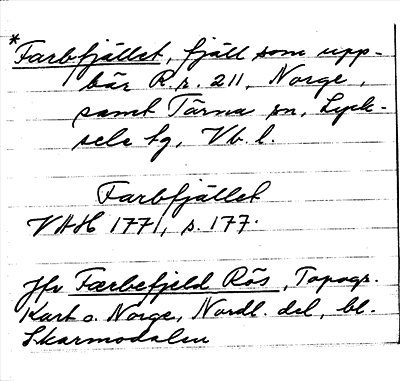 *Farbfjället, fjäll som upp-
bär R.r. 211, Norge,
samt Tärna sn, Lyck-
sele tg, Vb. l.
Farbfjället
VAH 1771, s. 177.
Jfr Færbefjeld Rös, Topogr.
Kart o. Norge, Nordl. del, bl.
Skarmodalen